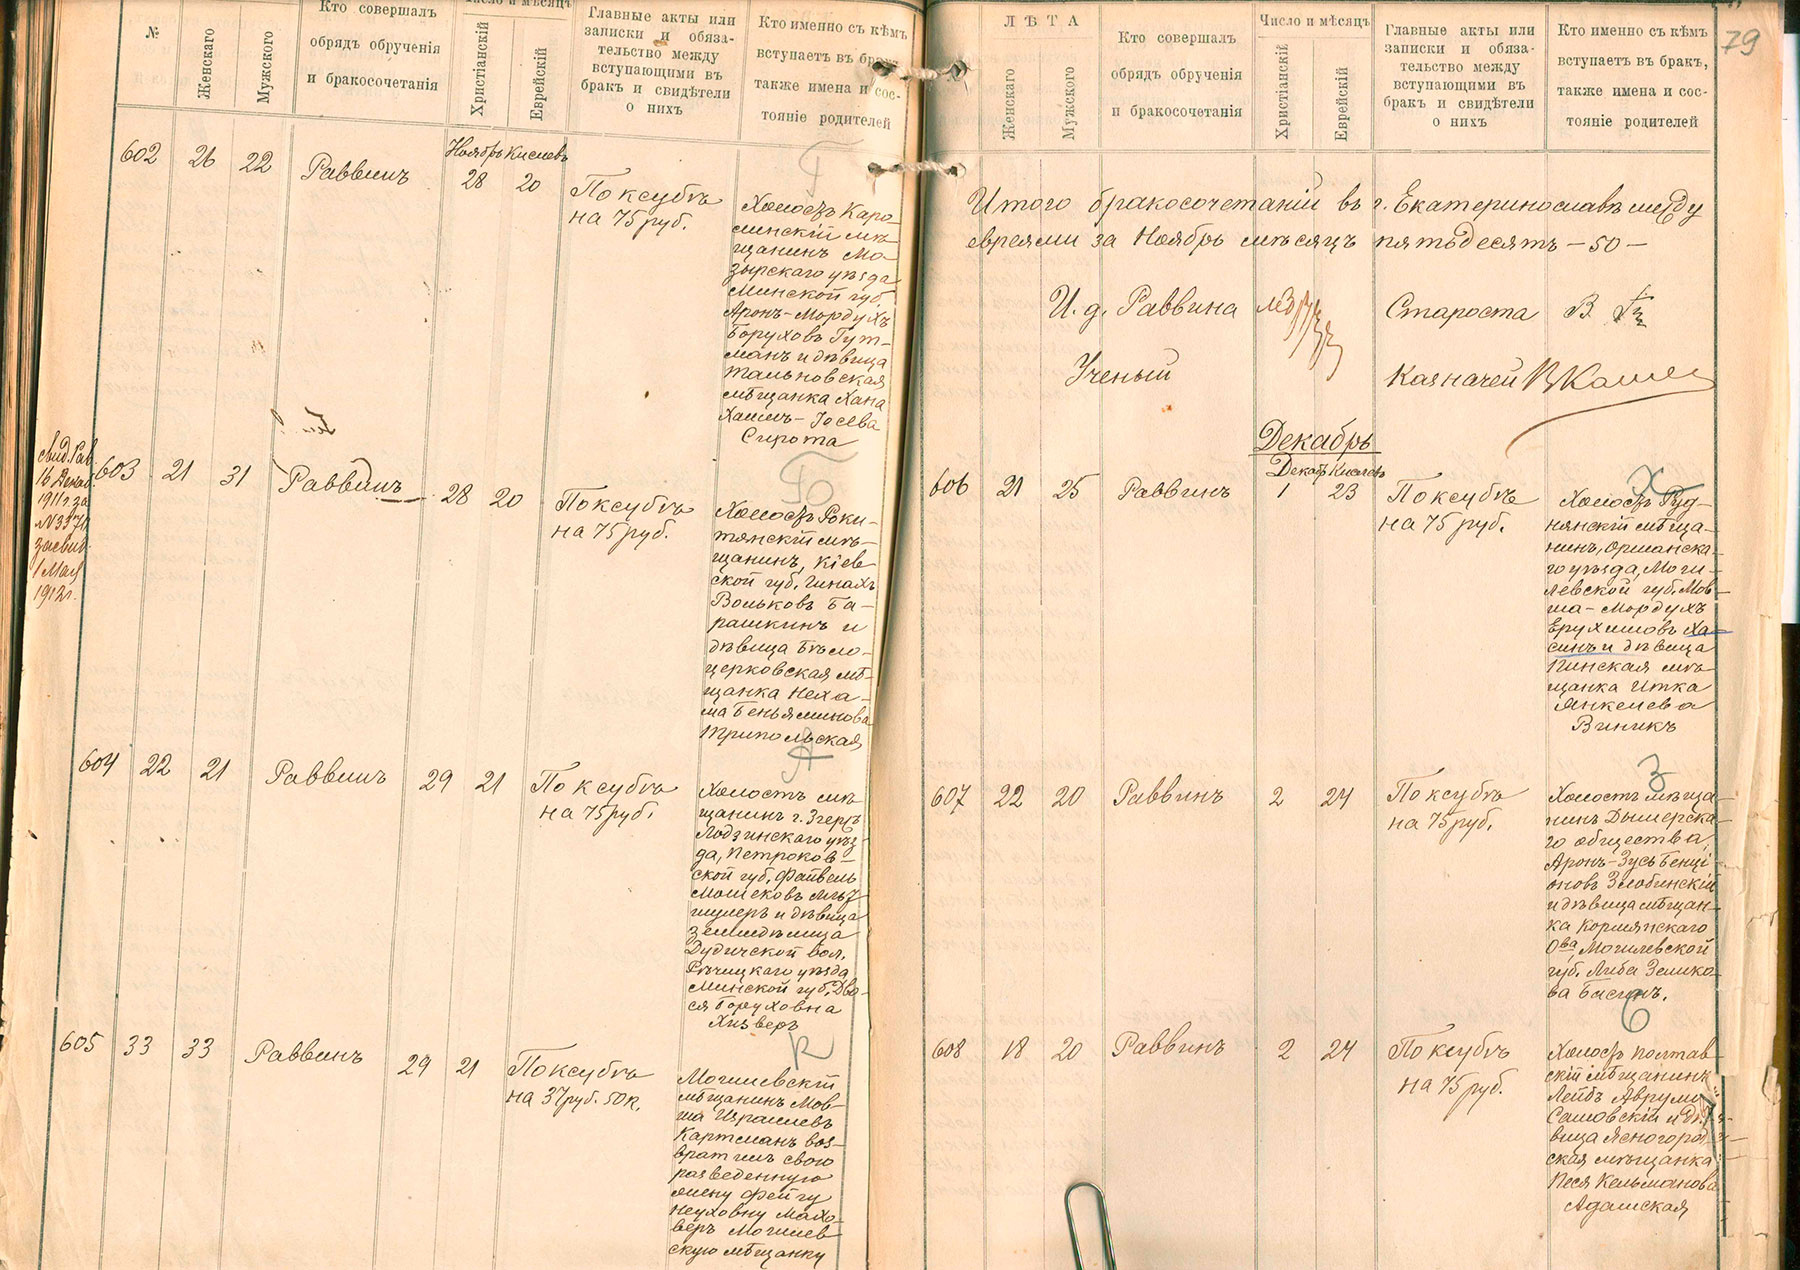 №
Женскаго
Мужского
Кто совершалъ
обрядъ обрученія
и бракосочетанія
Число и мѣсяцъ
Христіанскій
Еврейскій
Главные акты или
записки и обяза-
тельство между
вступающими въ
бракъ и свидѣтели
о нихъ
Кто именно съ кѣмъ
вступаетъ въ бракъ,
также имена и сос-
тояніе родителей
602
26
22
Раввинъ
Ноябрь Кислевъ
28
20
По ксубѣ
на 75 руб.
Г
Холостъ Каро
линскій мѣ
щанинъ Мо
зырскаго уѣзда
Минской губ.
Аронъ-Мордухъ
Боруховъ Гут-
манъ и дѣвица
Тальновская
мѣщанка Хана
Хаимъ-Іосева
Сирота
свид. Рав
16 Декаб
1911 г. за
1 Мая
1912 г.
603
21
31
Раввинъ
28
20
По ксубѣ
на 75 руб.
Б
Холостъ Роки-
тянскій мѣ-
щанинъ, Кіев
ской губ. Пинахъ
Вольковъ Ба-
рашкинъ и
дѣвица Бѣло-
церковская мѣ
щанка Неха-
ма Беньяминова
Трипольская
604
22
21
Раввинъ
29
21
По ксубѣ
на 75 руб.
Холостъ мѣ
щанинъ г. Згержъ
Лодзинскаго уѣз-
да, Петроков-
ской губ. Файвель
и дѣвица
Дудичской вол.
Рѣчицкаго уѣзда
Минской губ. Дво-
ся Боруховна
Хизверъ
605
33
33
Раввинъ
29
21
По ксубѣ
на 37 руб. 50 к.
К
Могилевскій
мѣщанинъ Мов-
ша Израилевъ
Картманъ воз-
вратилъ свою
разведенную
жену Фейгу
Неуховну Махо-
веръ Могилев
скую мѣщанку
79
ЛѢТА
Женскаго
Мужского
Кто совершалъ
обрядъ обрученія
и бракосочетанія
Число и мѣсяцъ
Христіанскій
Еврейскій
Главные акты или
записки и обяза-
тельство между
вступающими въ
бракъ и свидѣтели
о нихъ
Кто именно съ кѣмъ
вступаетъ въ бракъ,
также имена и сос-
тояніе родителей
Итого бракосочетаній въ г. Екатеринославѣ между
евреями за Ноябрь мѣсяцъ пятьдесятъ -50-
И. д. Раввина
Староста
Ученый
Казначей
Декабрь
Декабрь Кислевъ
606
21
25
Раввинъ
1
23
По ксубѣ
на 75 руб.
Х
Холостъ Руд-
нянскій мѣща-
нинъ, Оршанска-
го уѣзда, Моги-
левской губ. Мов
ша-Мордухъ
Ерухимовъ Ха-
синъ и дѣвица
Пинская мѣ-
щанка Итка
Янкелева
Виникъ
607
22
20
Раввинъ
2
24
По ксубѣ
на 75 руб.
З
Холостъ мѣща-
нинъ Дымерска-
го общества,
Аронъ-Зусь Бенці-
оновъ Злобинскій
и дѣвица мѣщан-
ка Кормянскаго
О-ва, Могилевской
губ. Либа Зелико-
ва Басинъ.
608
18
20
Раввинъ
2
24
По ксубѣ
на 75 руб.
С
Холостъ полтав-
скій мѣщанинъ
Лейбъ Аврумъ
Самовскій и дѣ-
вица Ясногород-
ская мѣщанка
Песя Кельманова
Адамская